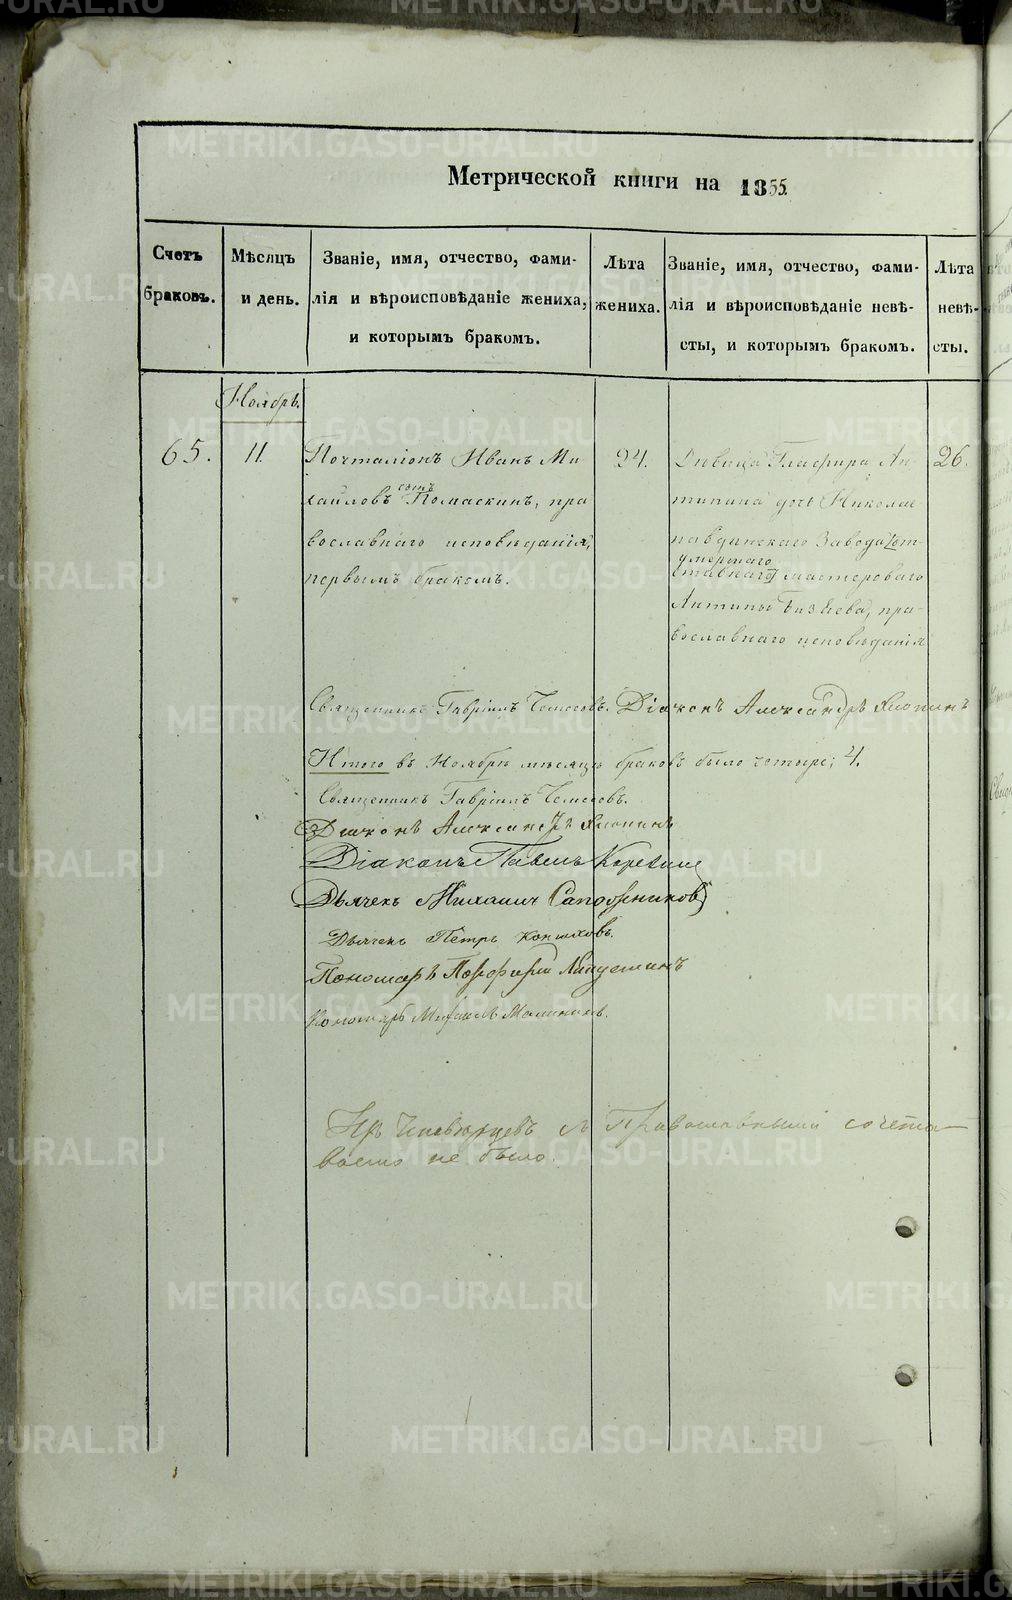 Метрической книги на 1855.
Счетъ браковъ.
Мѣсяцъ и день.
Званіе, имя, отчество, фамилія и вѣроисповѣданіе жениха, и которымъ бракомъ.
Лѣта жениха.
Званіе, имя, отчество, фамилія и вѣроисповѣданіе невѣсты, и которымъ бракомъ.
Лѣта невѣсты.
Ноябрь.
65.
11.
Почталіонъ Иванъ Ми
хайловъ сынъ Помаскинъ, пра
вославнаго исповѣданія,
первымъ бракомъ.
24.
Дѣвица Глафира Ан
типина дочь Николае
павдинскаго Завода от
умершаго
ставнаго мастероваго
Антипы, пра-
вославнаго исповѣданія
26.
Священникъ Гавріилъ Діаконъ Александръ Японинъ
Итого въ Ноябрѣ мѣсяцѣ браковъ было четыре; 4.
Священникъ Гавріилъ
Діаконъ Александръ
Діаконъ Павелъ
Дьячекъ Михаилъ Сапожниковъ
Дьячекъ Петръ Коняховъ.
Пономарь Порфирій
Пономарь Малининъ.
съ Православными сочета-
ваемо не было.
METRIKI.GASO-URAL.RU